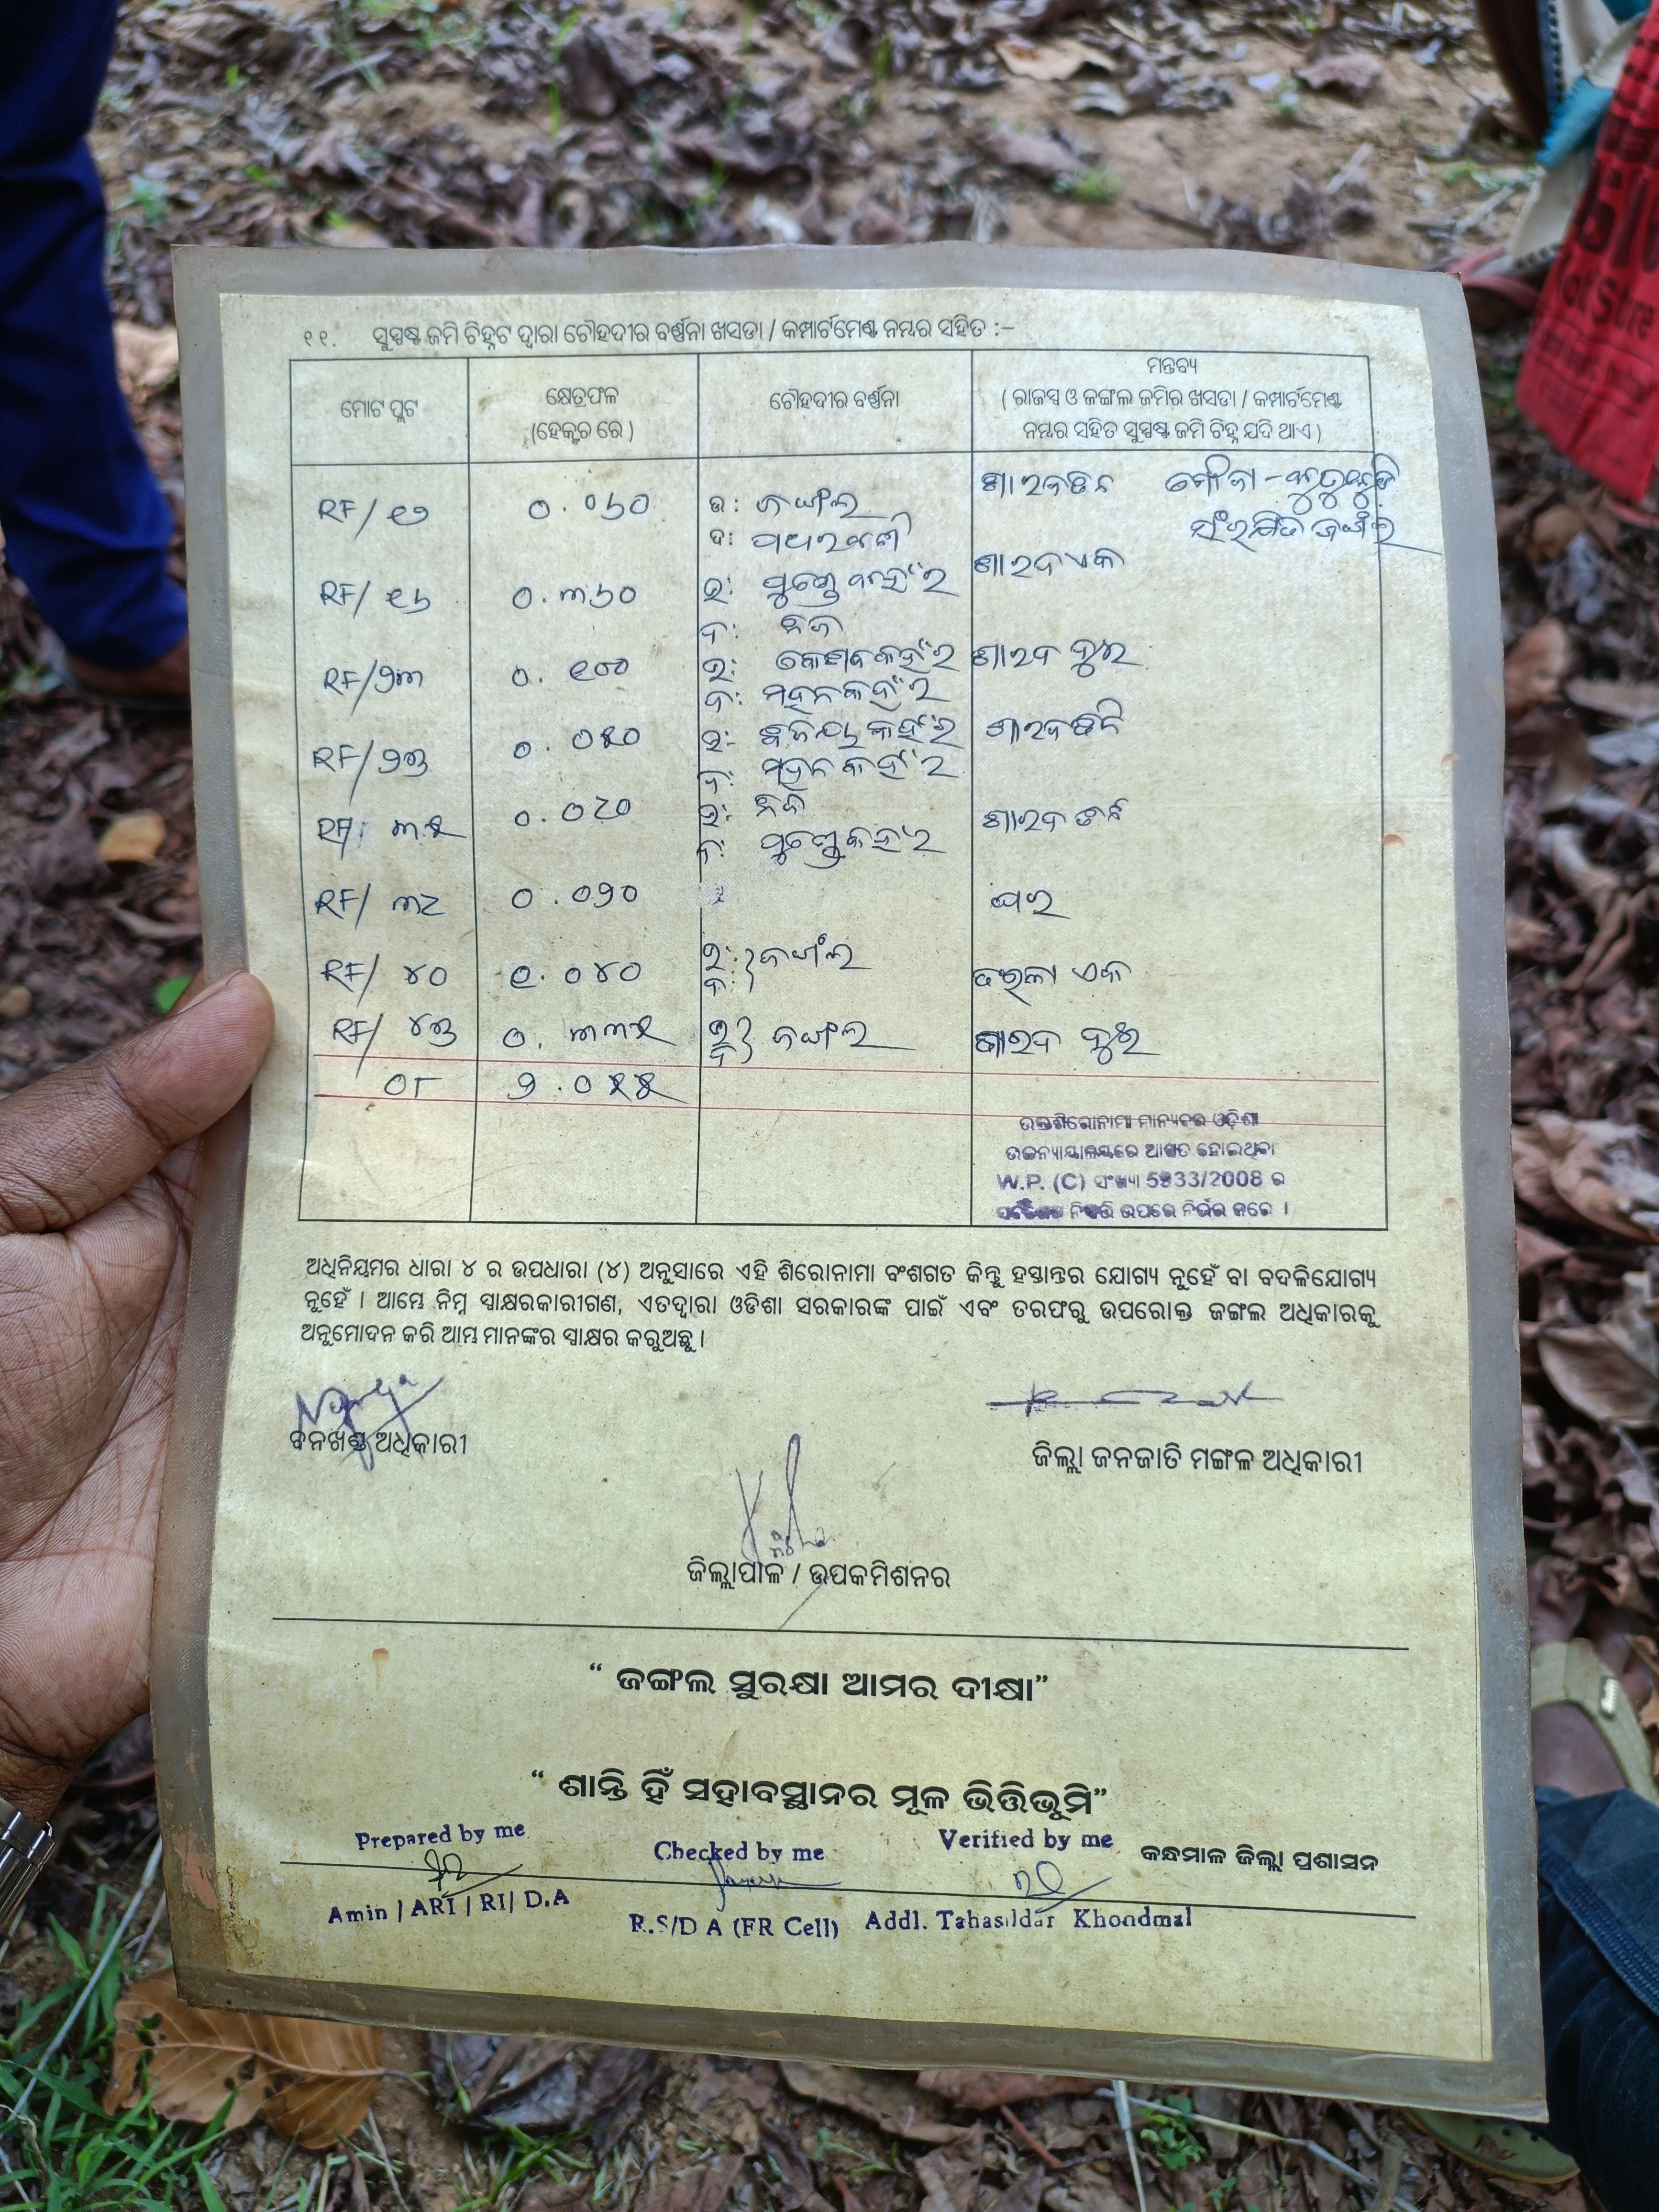 ୧୧. ସୁସ୍ପଷ୍ଟ ଜମି ଚିହ୍ନଟ ଦ୍ୱାରା ଚୌହଦୀର ବର୍ଣ୍ଣନା ଖସଡା / କମ୍ପାର୍ଟମେଣ୍ଟ ନମ୍ବର ସହିତ :–
ମୋଟ ପ୍ଲଟ
କ୍ଷେତ୍ରଫଳ
(ହେକ୍ଟର ରେ)
ଚୌହଦୀର ବର୍ଣ୍ଣନା
ମନ୍ତବ୍ୟ
(ରାଜସ୍ୱ ଓ ଜଙ୍ଗଲ ଜମିର ଖସଡା / କମ୍ପାର୍ଟମେଣ୍ଟ
ନମ୍ବର ସହିତ ସୁସ୍ପଷ୍ଟ ଜମି ଚିହ୍ନ ଯଦି ଥାଏ)
RF/ ୧୭ ୦.୦୬୦ ଉ: ଜଙ୍ଗଲ ଶାରଦତିନ ମୌଜା -
ଦ: ସଂରକ୍ଷିତ ଜଙ୍ଗଲ
RF/ ୧୬ ୦.୩୬୦ ଉ: କହଁର ଶାରଦଏକ
ଦ: ନିଜ
RF/୨୩ ୦.୧୦୦ ଉ: କେଶବ କହଁର ଶାରଦ ଦୁଇ
ଦ: ମହନ କହଁର
RF/୨୩ ୦.୦୫୦ ଉ: କହଁର ଶାରଦତିନି
ଦ: ମହନ କହଁର
RF/ ୩୫ ୦.୦୮୦ ଉ: ନିଜ ଶାରଦ ତିନି
ଦ: କହଁର
RF/ ୩୮ ୦.୦୨୦ ଘର
RF/ ୪୦ ୧.୦୪୦ ଉ: ଦ: ଜଙ୍ଗଲ ଡଙ୍ଗଲା ଏକ
RF/ ୪୩ ୦.୩୩୫ ଉ: ଦ: ଜଙ୍ଗଲ ଶାରଦ ଦୁଇ
୦୮ ୨.୦୫୫
ଉକ୍ତ ଶିରୋନାମା ମାନ୍ୟବର ଓଡ଼ିଶା
ଉଚ୍ଚନ୍ୟାୟାଳୟରେ ଆଗତ ହୋଇଥିବା
W.P. (C) ସଂଖ୍ୟା 5933/2008 ର
ନିଷ୍ପତ୍ତି ଉପରେ ନିର୍ଭର କରେ ।
ଅଧିନିୟମର ଧାରା ୪ ର ଉପଧାରା (୪) ଅନୁସାରେ ଏହି ଶିରୋନାମା ବଂଶଗତ କିନ୍ତୁ ହସ୍ତାନ୍ତର ଯୋଗ୍ୟ ନୁହେଁ ବା ବଦଳିଯୋଗ୍ୟ
ନୁହେଁ । ଆମ୍ଭେ ନିମ୍ନ ସ୍ୱାକ୍ଷରକାରୀଗଣ, ଏତଦ୍ୱାରା ଓଡିଶା ସରକାରଙ୍କ ପାଇଁ ଏବଂ ତରଫରୁ ଉପରୋକ୍ତ ଜଙ୍ଗଲ ଅଧିକାରକୁ
ଅନୁମୋଦନ କରି ଆମ୍ଭ ମାନଙ୍କର ସ୍ୱାକ୍ଷର କରୁଅଛୁ ।
ବନଖଣ୍ଡ ଅଧିକାରୀ
ଜିଲ୍ଲା ଜନଜାତି ମଙ୍ଗଳ ଅଧିକାରୀ
ଜିଲ୍ଲାପାଳ / ଉପକମିଶନର
“ ଜଙ୍ଗଲ ସୁରକ୍ଷା ଆମର ଦୀକ୍ଷା”
“ ଶାନ୍ତି ହିଁ ସହାବସ୍ଥାନର ମୂଳ ଭିତ୍ତିଭୂମି”
Prepared by me
Checked by me
Verified by me
କନ୍ଧମାଳ ଜିଲ୍ଲା ପ୍ରଶାସନ
Amin / ARI / RI/ D.A
R.S/D A (FR Cell)
Addl. Tahasildar Khondmal